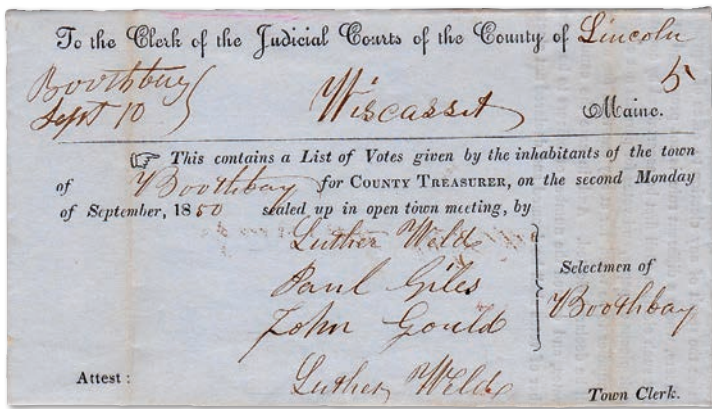 To the Clerk of the Judicial Courts of the County of Lincoln
5
Boothbay
Sept 10
Wiscasset
Maine.
☞ This contains a List of Votes given by the inhabitants of the town
of Boothbay for COUNTY TREASURER, on the second Monday
of September, 1850 sealed up in open town meeting, by
Luther Weld
Paul Giles
John Gould
Selectmen of
Boothbay
Attest: Luther Weld Town Clerk.